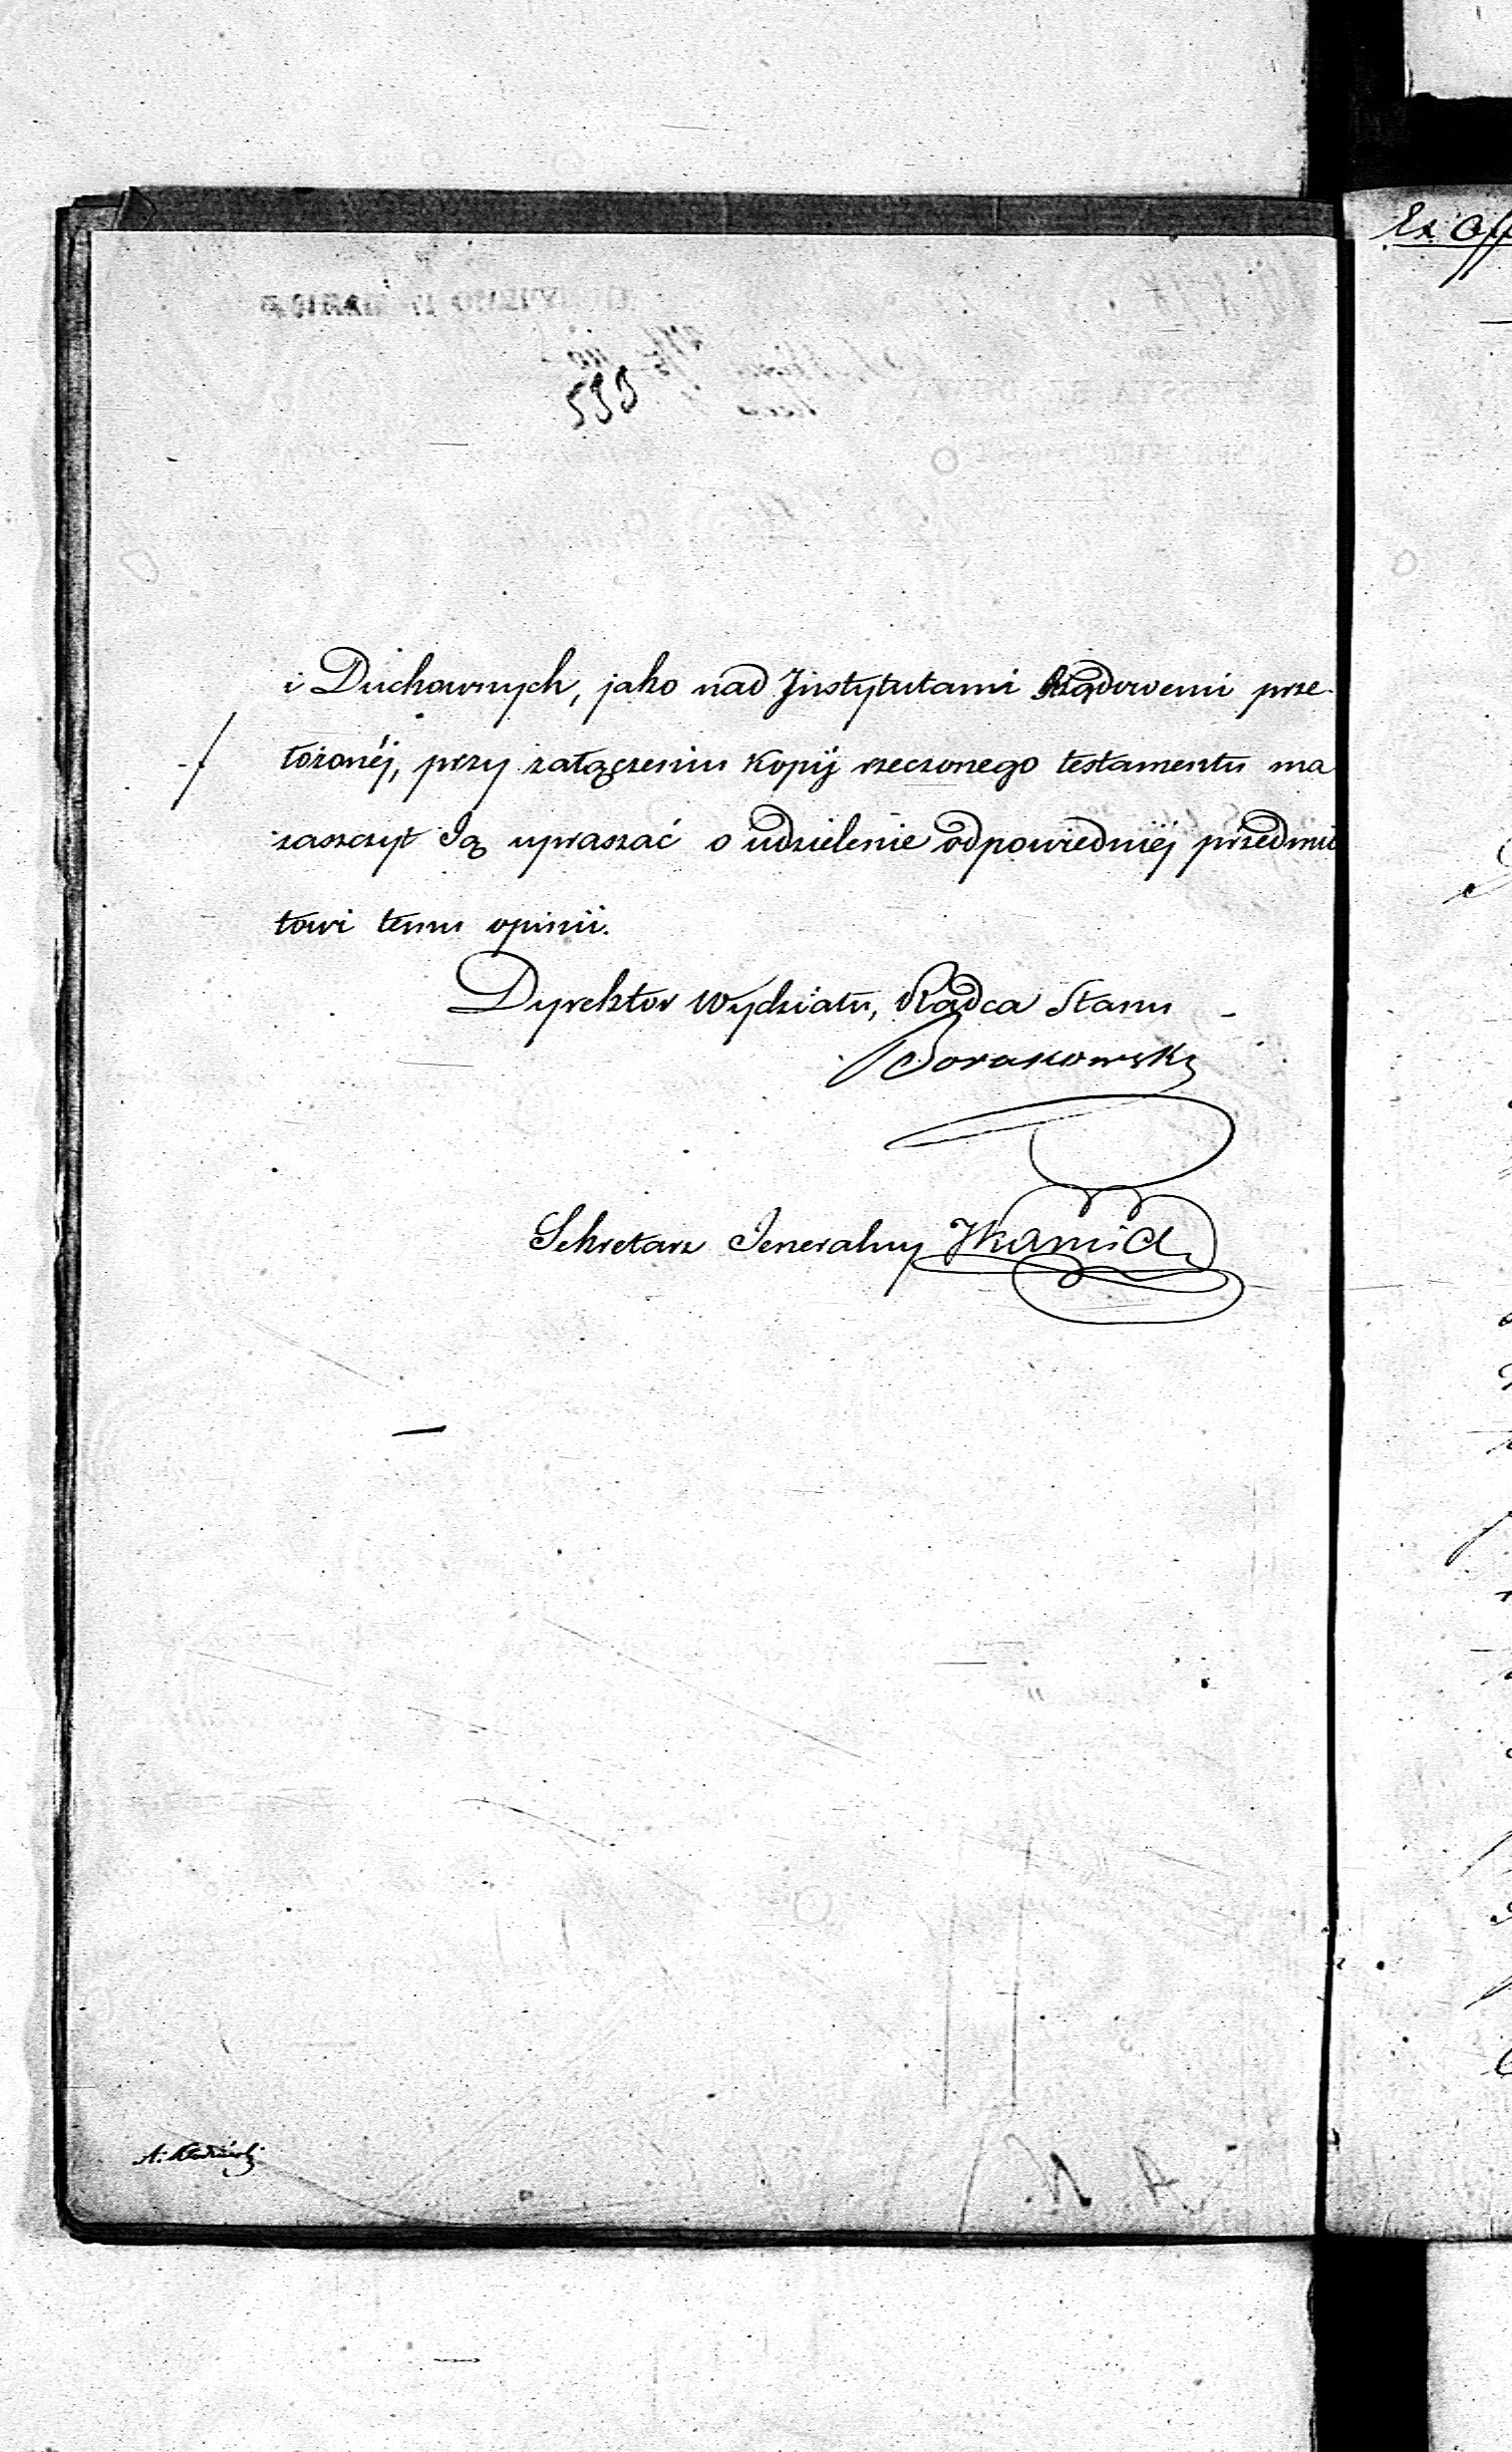 i Duchownych, jako nad Instytutami Rządowemi prze-
łożonéj, przy załączeniu Kopij rzeczonego testamentu ma
zaszczyt Ją upraszać o udzielenie odpowiedniéj przedmio
towi temu opinii.
Dyrektor Wydziału, Radca Stanu
Sekretarz Jeneralny
Ex Off